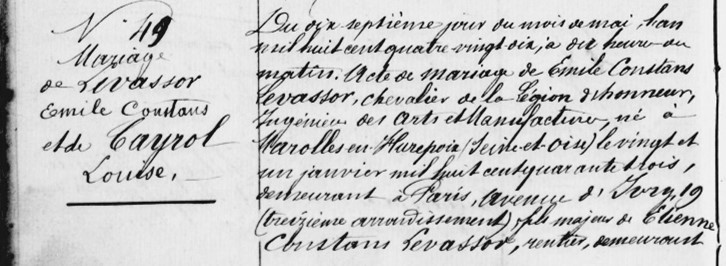 N° 49
Mariage
de Levassor
Emile Constans
et de Cayrol
Louise, 
Du dix septième jour du mois de mai, l'an
mil huit cent quatre vingt dix, à dix heures du
matin. Acte de mariage de Emile Constans
Levassor, chevalier de la Légion d'honneur,
Ingénieur des Arts et Manufactures, né à
Marolles en Hurepoix (Seine et Oise) le vingt et
un janvier mil huit cent quarante trois,
demeurant à Paris, avenue d'Ivry, 19
(treizième arrondissement), fils majeur de Etienne
Constans Levassor, rentier, demeurant